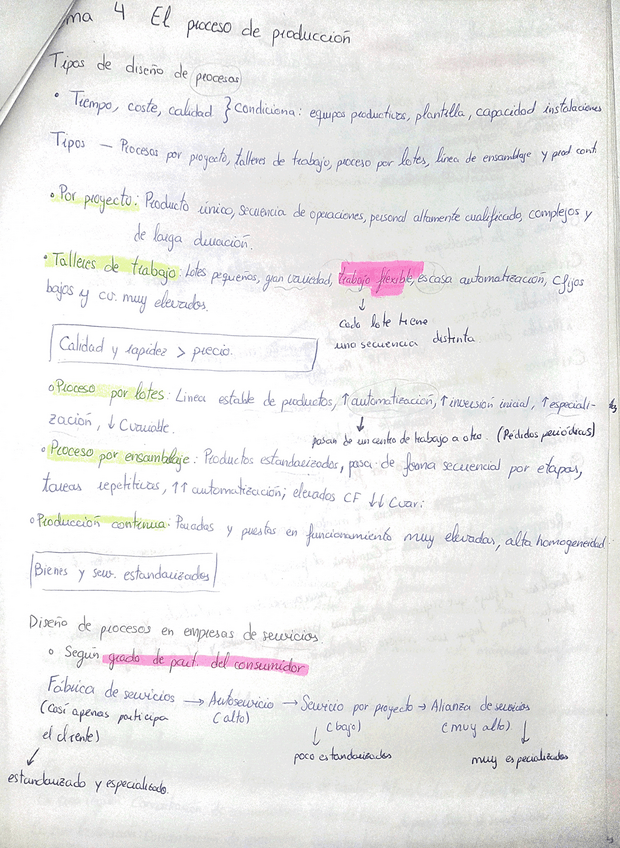 ma 4 El proceso de producción
Tipos de diseño de procesos
• Tiempo, coste, calidad } condiciona: equipos productivos, plantilla, capacidad instalaciones
Tipos — Procesos por proyecto, talleres de trabajo, proceso por lotes, línea de ensamblaje y prod cont.
• Por proyecto: Producto único, secuencia de operaciones, personal altamente cualificado, complejos y
de larga duración.
• Talleres de trabajo: Lotes pequeños, gran variedad, trabajo flexible, escasa automatización, Cfijos
bajos y cv. muy elevados.
↓
cada lote tiene
una secuencia distinta
Calidad y rapidez > precio.
• Proceso por lotes: Línea estable de productos, ↑ automatización, ↑ inversión inicial, ↑ especiali-
zación, ↓ Cvariable.
↓
pasan de un centro de trabajo a otro. (Pedidos periódicos)
• Proceso por ensamblaje: Productos estandarizados, pasa de forma secuencial por etapas,
tareas repetitivas, ↑↑ automatización; elevados CF ↓↓ Cvar.
• Producción continua: Paradas y puestas en funcionamiento muy elevadas, alta homogeneidad
Bienes y serv. estandarizados
Diseño de procesos en empresas de servicios
• Según grado de part. del consumidor
Fábrica de servicios → Autoservicio → Servicio por proyecto → Alianza de servicios
(casi apenas participa el cliente) (alto) (bajo) (muy alto)
↓ estandarizado y especializado.
↓ poco estandarizados
↓ muy especializados